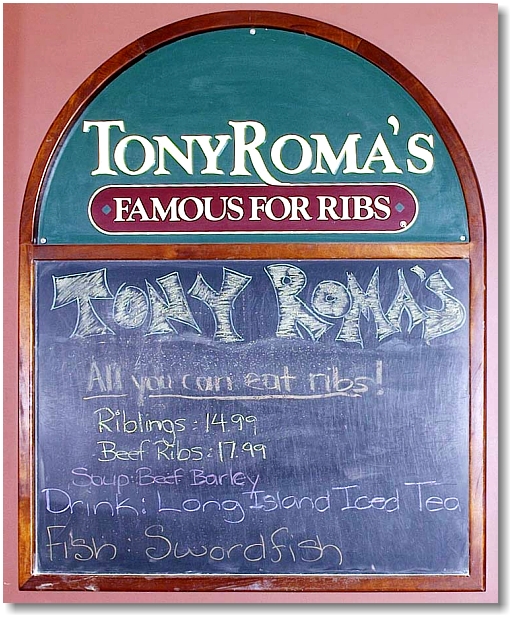 TONY ROMA'S
FAMOUS FOR RIBS
TONY ROMA'S
All you can eat ribs!
Riblings: 14.99
Beef Ribs: 17.99
Soup: Beef Barley
Drink: Long Island Iced Tea
Fish: Swordfish